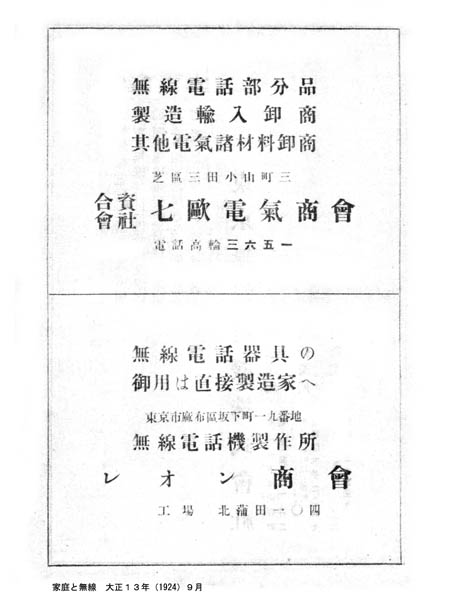 無線電話部分品
製造輸入卸商
其他電氣諸材料卸商
芝區三田小山町三
合資會社 七歐電氣商會
電話高輪三六五一
無線電話器具の
御用は直接製造家へ
東京市麻布區坂下町一九番地
無線電話機製作所
レオン商會
工場 北蒲田一〇四
家庭と無線 大正13年（1924）9月